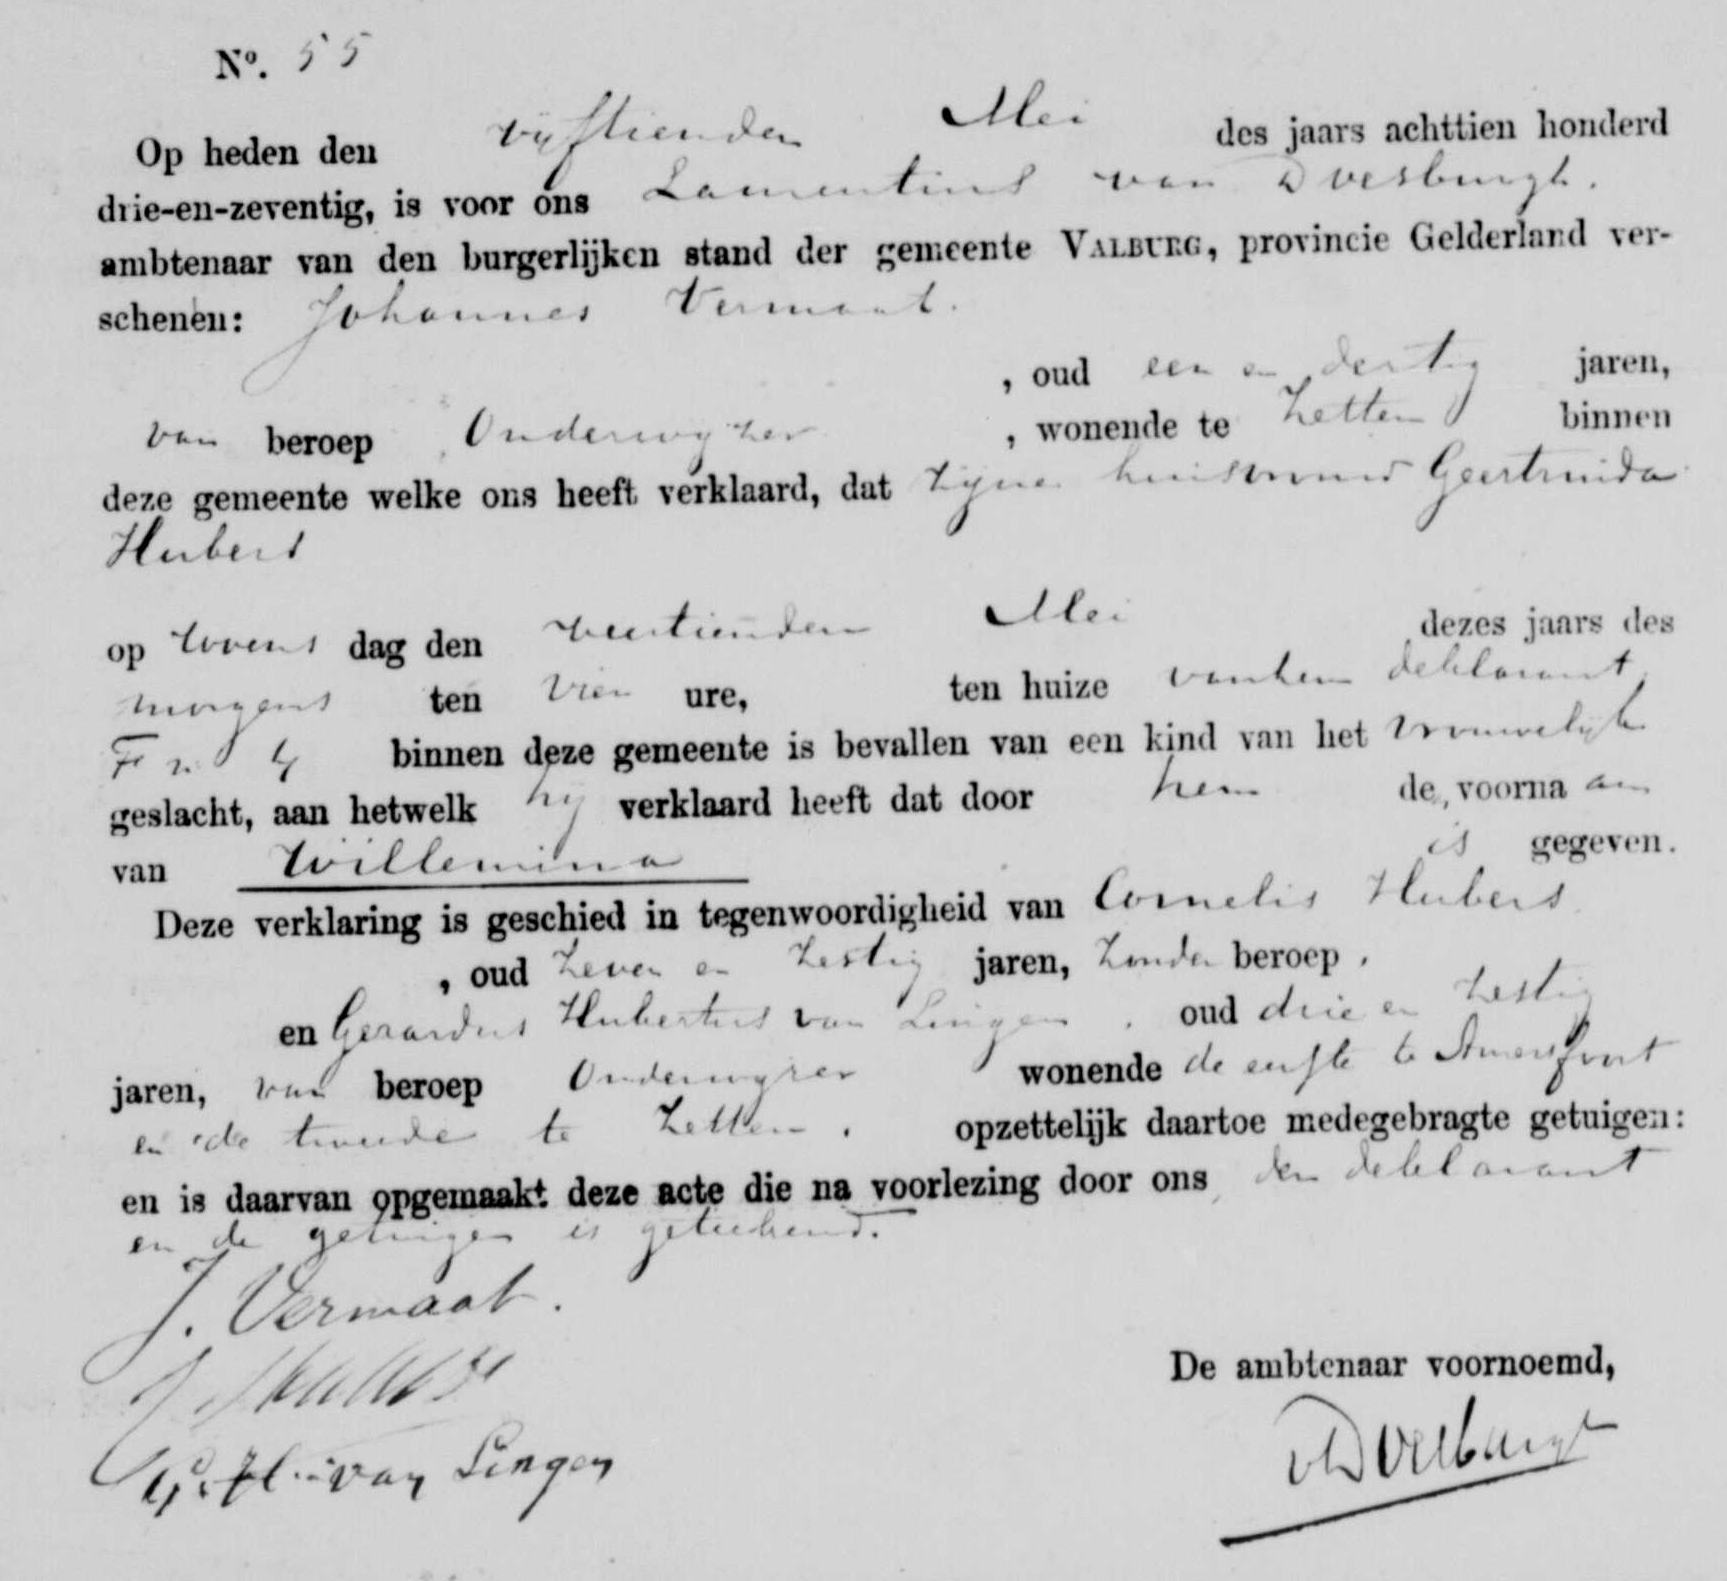 No. 55
Op heden den vijftienden Mei des jaars achttien honderd
drie-en-zeventig, is voor ons Laurentius van Everburgh.
ambtenaar van den burgerlijken stand der gemeente VALBURG, provincie Gelderland ver-
schenen: Johannes Vermaat.
, oud een en dertig jaren,
van beroep Onderwijzer , wonende te Zetten binnen
deze gemeente welke ons heeft verklaard, dat zijne huisvrouw Geertruida
Hubers
op Woens dag den veertienden Mei dezes jaars des
morgens ten vier ure, ten huize van hem deklarant
F no 4 binnen deze gemeente is bevallen van een kind van het vrouwelijk
geslacht, aan hetwelk hij verklaard heeft dat door hem de voorna am
van Willemina is gegeven.
Deze verklaring is geschied in tegenwoordigheid van Cornelis Hubers
, oud zeven en zestig jaren, zonder beroep .
en Gerardus Hubertus van Lingen , oud drie en zestig
jaren, van beroep Onderwijzer wonende de eerste te Amersfoort
en de tweede te Zetten . opzettelijk daartoe medegebragte getuigen:
en is daarvan opgemaakt deze acte die na voorlezing door ons, den deklarant
en de getuigen is geteekend.
J. Vermaat.
G. H. van Lingen
De ambtenaar voornoemd,